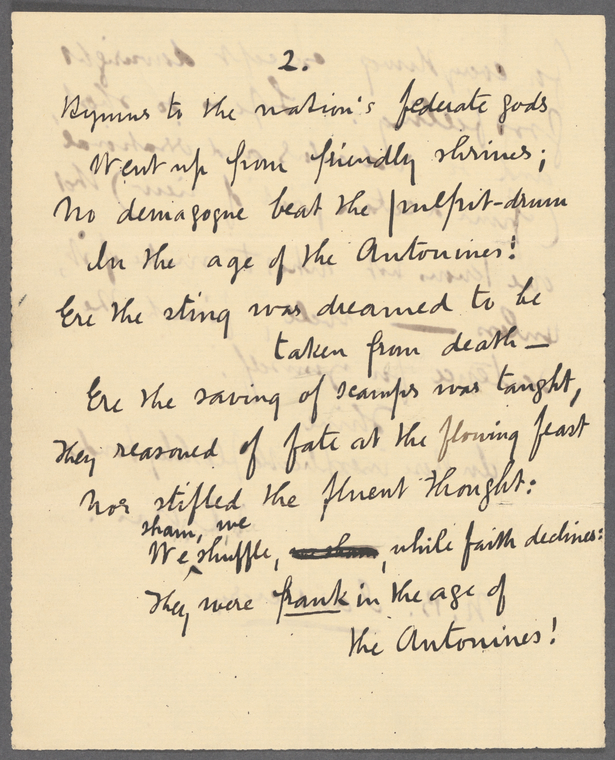 2.
Hymns to the nation's federate gods
Went up from friendly shrines;
No demagogue beat the pulpit-drum
In the age of the Antonines!
Ere the sting was dreamed to be
taken from death—
Ere the saving of scamps was taught,
They reasoned of fate at the flowing feast
Nor stifled the fluent thought:
sham, we
We shuffle, while faith declines:
They were frank in the age of
the Antonines!